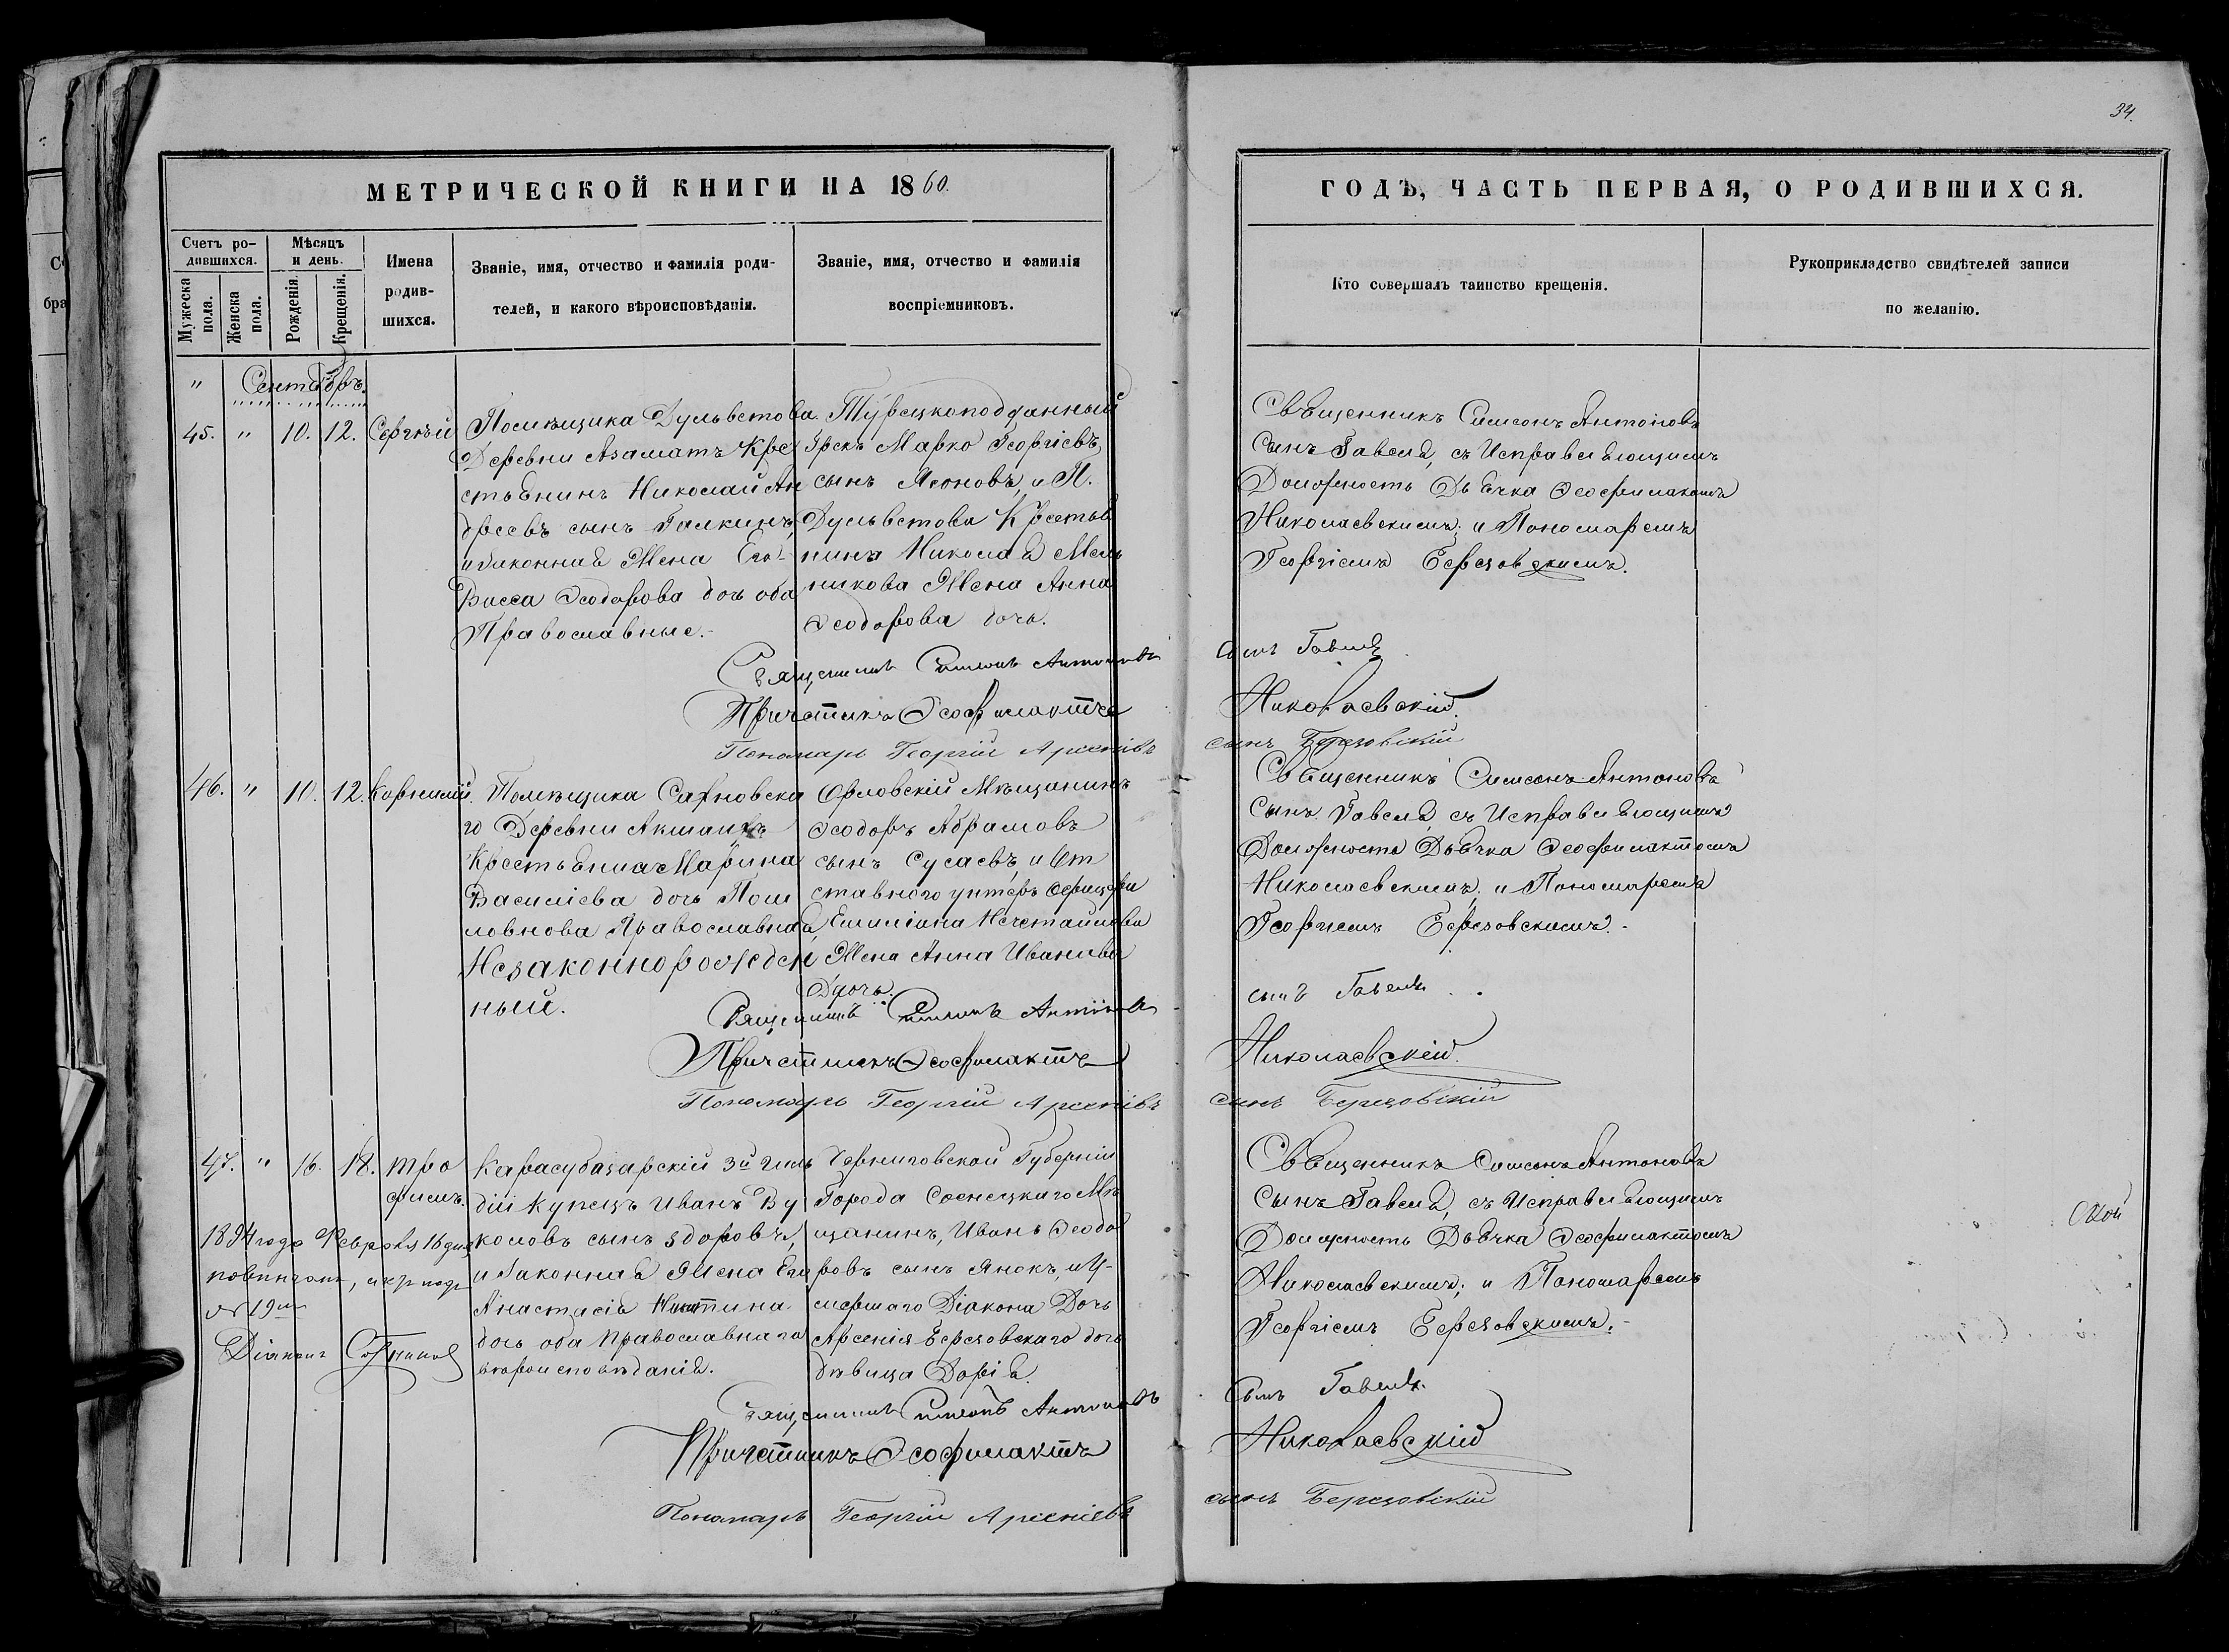 34.
МЕТРИЧЕСКОЙ КНИГИ НА 1860.
Счетъ ро-
дившихся.
Мужеска пола.
Женска пола.
Мѣсяцъ
и день.
Рожденія.
Крещенія.
Имена
родив-
шихся.
Званіе, имя, отчество и фамилія роди-
телей, и какого вѣроисповѣданія.
Званіе, имя, отчество и фамилія
воспріемниковъ.
ГОДЪ, ЧАСТЬ ПЕРВАЯ, О РОДИВШИХСЯ.
Кто совершалъ таинство крещенія.
Рукоприкладство свидѣтелей записи
по желанію.
" Сентябрь.
45. " 10. 12. Сергѣй
Помѣщика Дульветова
Деревни Азаматъ Кре
стьянинъ Николай Ан
дреевъ сынъ Галкинъ,
и законная Жена Его
Васса Ѳеодорова дочь оба
Православные.
Турецкоподданный
Грекъ Марко Георгіевъ
сынъ Ясоновъ, и П.
Дульветова Крестья
нина Николая Мель
никова Жена Анна
Ѳеодорова дочь.
Священникъ Симеонъ Антоновъ
Сынъ Гавеля, съ Исправляющимъ
Должность Дьячка Ѳеофилактомъ
Николаевскимъ; и Пономаремъ
Георгіемъ Березовскимъ.
Священникъ Симеонъ Антоновъ сынъ Гавеля
Причетникъ Ѳеофилактъ Николаевскій.
Пономарь Георгій Арсеніевъ сынъ Березовскій
46. " 10. 12. Корнилій.
Помѣщика Сарновска
го Деревни Акманъ
Крестьянка Марина
Василіева дочь
Православная,
Незаконнорожден
ный.
Орловскій Мѣщанинъ
Ѳеодоръ Абрамовъ
сынъ Сусаевъ, и От
ставного унтеръ Офицера
Емиліана Нечетайлова
Жена Анна Иванова
Дочь.
Священникъ Симеонъ Антоновъ
Сынъ Гавеля, съ Исправляющимъ
Должность Дьячка Ѳеофилактомъ
Николаевскимъ; и Пономаремъ
Георгіемъ Березовскимъ.
Священникъ Симеонъ Антоновъ сынъ Гавеля
Причетникъ Ѳеофилактъ Николаевскій.
Пономарь Георгій Арсеніевъ сынъ Березовскій
47. " 16. 18. Тро
фимъ.
Карасубазарскій 3й гиль
діи купецъ Иванъ Ву
коловъ сынъ Здоровъ,
и Законная Жена Его
Анастасія Никитина
дочь оба Православнаго
вѣроисповѣданія.
Черниговской Губерніи
Города Сосницкаго Мѣ
щанинъ, Иванъ Ѳеодо
ровъ сынъ Янокъ, и У-
мершаго Діакона Дочь
Арсенія Березовскаго дочь
дѣвица Дарія.
Священникъ Симеонъ Антоновъ
Сынъ Гавеля, съ Исправляющимъ
Должность Дьячка Ѳеофилактомъ
Николаевскимъ; и Пономаремъ
Георгіемъ Березовскимъ.
Февраля 16 дня
Діаконъ
Священникъ Симеонъ Антоновъ Сынъ Гавеля.
Причетникъ Ѳеофилактъ Николаевскій
Пономарь Георгій Арсеніевъ сынъ Березовскій